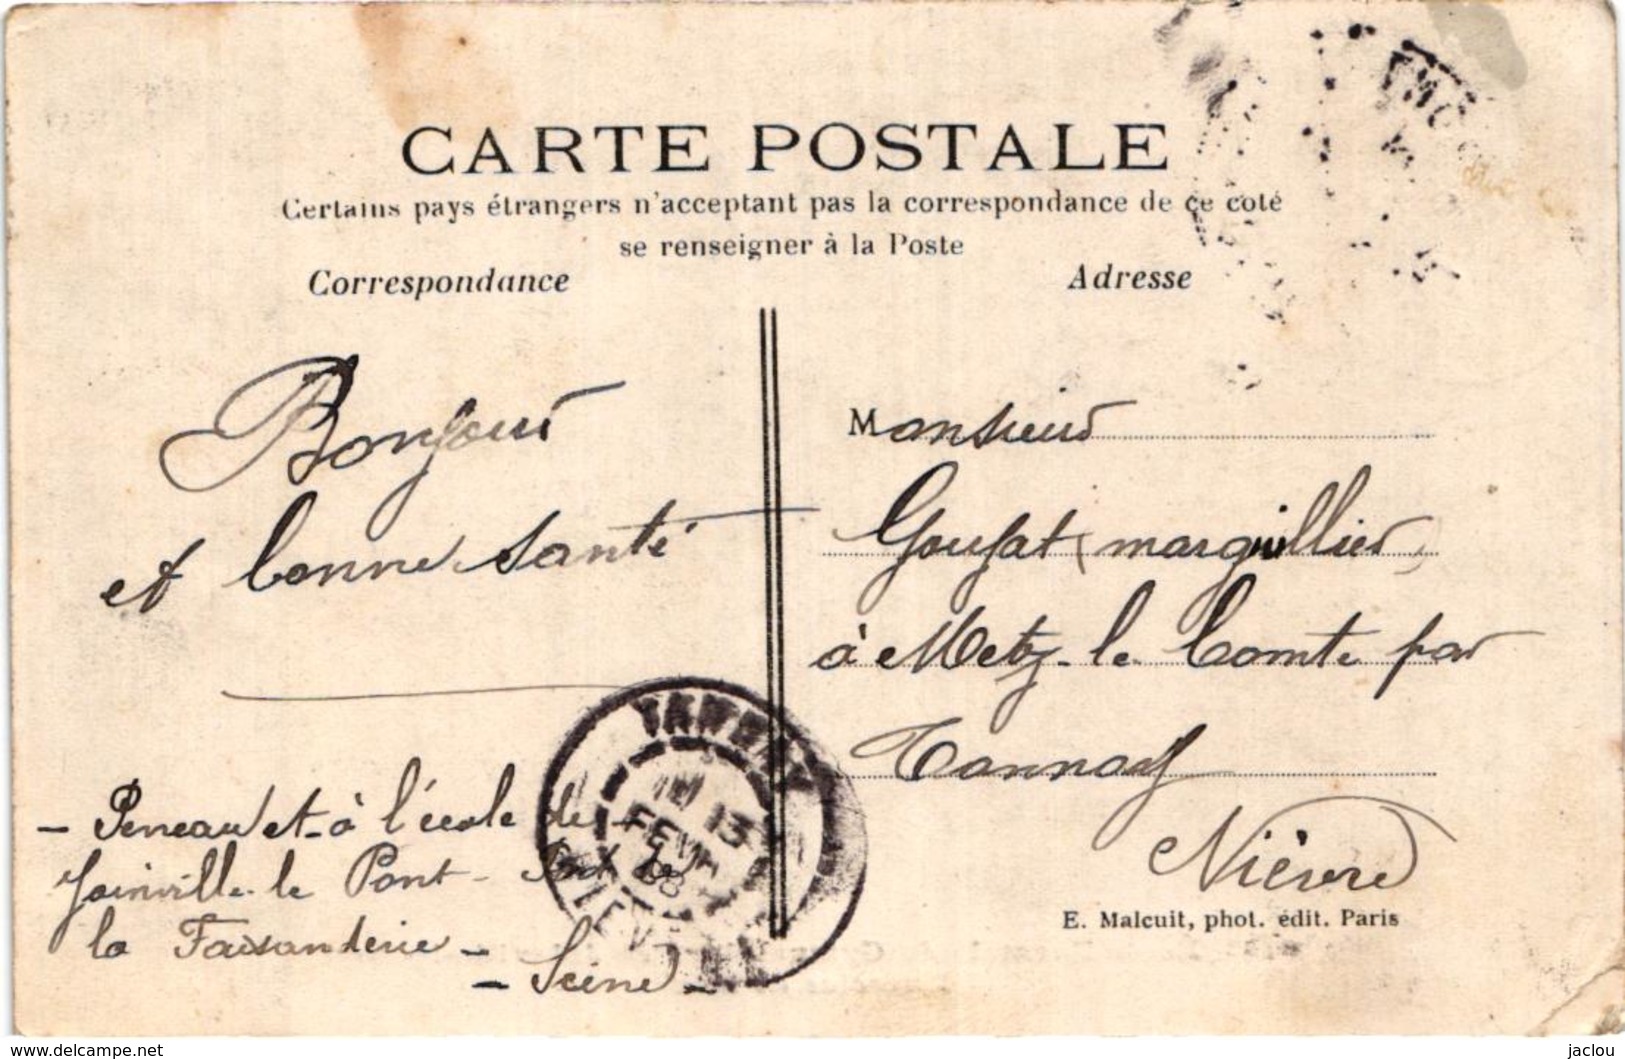 CARTE POSTALE
Certains pays étrangers n'acceptent pas la correspondance de ce coté
se renseigner à la Poste
Correspondance
Adresse
Bonjour
et bonne santé
Monsieur
Goujat (marguillier)
à Metz-le Comte par
Tannay
Nièvre
- Peneau et à l'école de
Joinville-le Pont -
la Faisanderie -
- Seine -
TANNAY
13
FEVR
08
NIEVRE
E. Malcuit, phot. édit. Paris
www.delcampe.net
jaclou